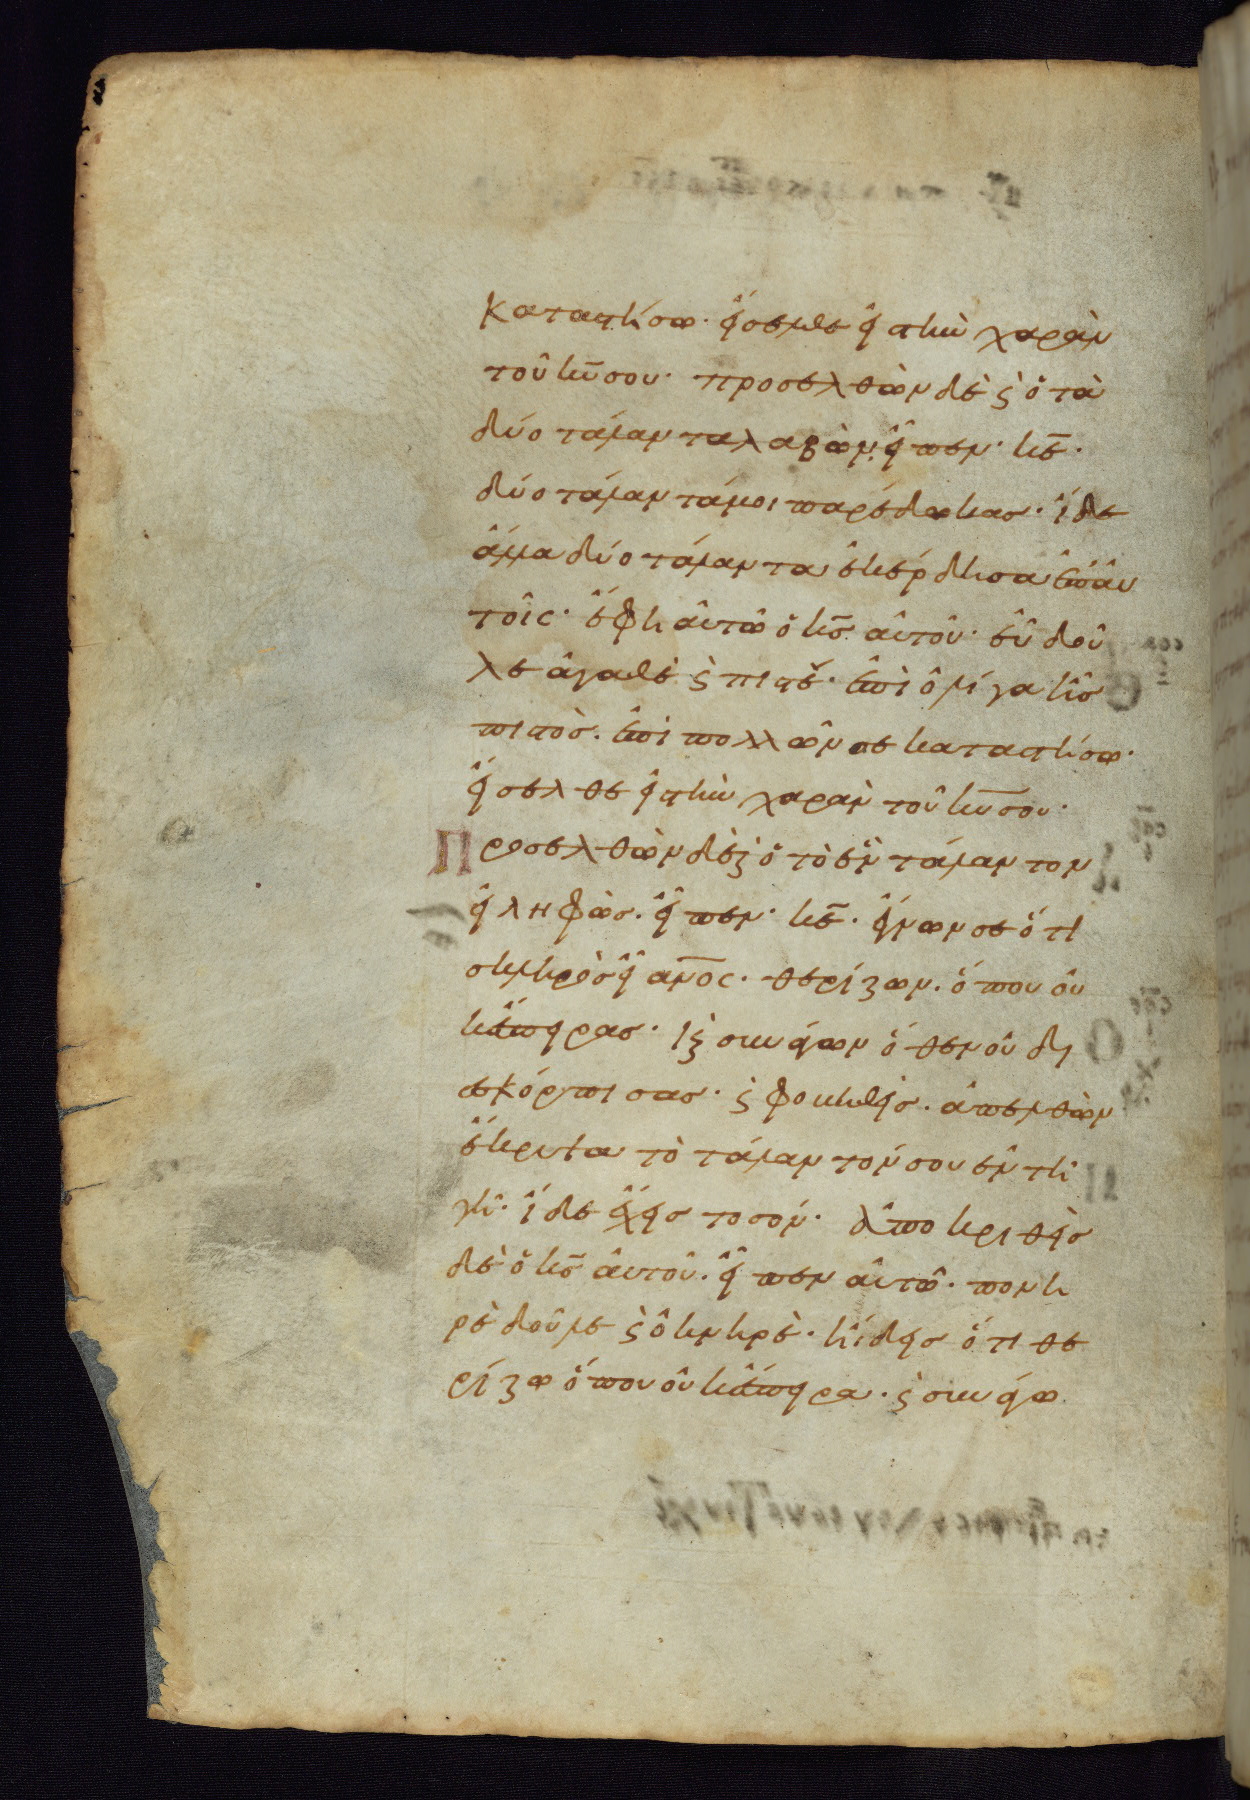 καταστήσω· εἴσελθε εἰς τὴν χαρὰν
τοῦ κ̅υ̅ σου· προσελθὼν δὲ ϗ ὁ τὰ
δύο τάλαντα λαβὼν, εἶπεν· κ̅ε̅·
δύο τάλαντά μοι παρέδωκας· ἴδε
ἄλλα δύο τάλαντα ἐκέρδησα ἐπ' αὐ
τοῖς· ἔφη αὐτῶ ὁ κ̅ς̅ αὐτοῦ· εὖ δοῦ
λε ἀγαθὲ ϗ πιστέ· ἐπὶ ὀλίγα ἦς
πιστὸς· ἐπὶ πολλῶν σε καταστήσω·
εἴσελθε εἰς τὴν χαρὰν τοῦ κ̅υ̅ σου·
Προσελθὼν δὲ ϗ ὁ τὸ ἓν τάλαντον
εἰληφὼς· εἶπεν· κ̅ε̅· ἔγνων σε ὅτι
σκληρὸς εἶ α̅ν̅ο̅ς· θερίζων· ὅπου οὐ
κ ἔσπειρας· ϗ συνάγων ὅθεν οὐ δι
εσκόρπισας· ϗ φοβηθεὶς· ἀπελθὼν
ἔκρυψα τὸ τάλαντόν σου ἐν τῆ
γῆ· ἴδε ἔχεις τὸ σόν· Ἀποκριθεὶς
δὲ ὁ κ̅ς̅ αὐτοῦ· εἶπεν αὐτῶ· πονη
ρὲ δοῦλε ϗ ὀκνηρέ· ἤδεις ὅτι θε
ρίζω ὅπου οὐκ ἔσπειρα· ϗ συνάγω